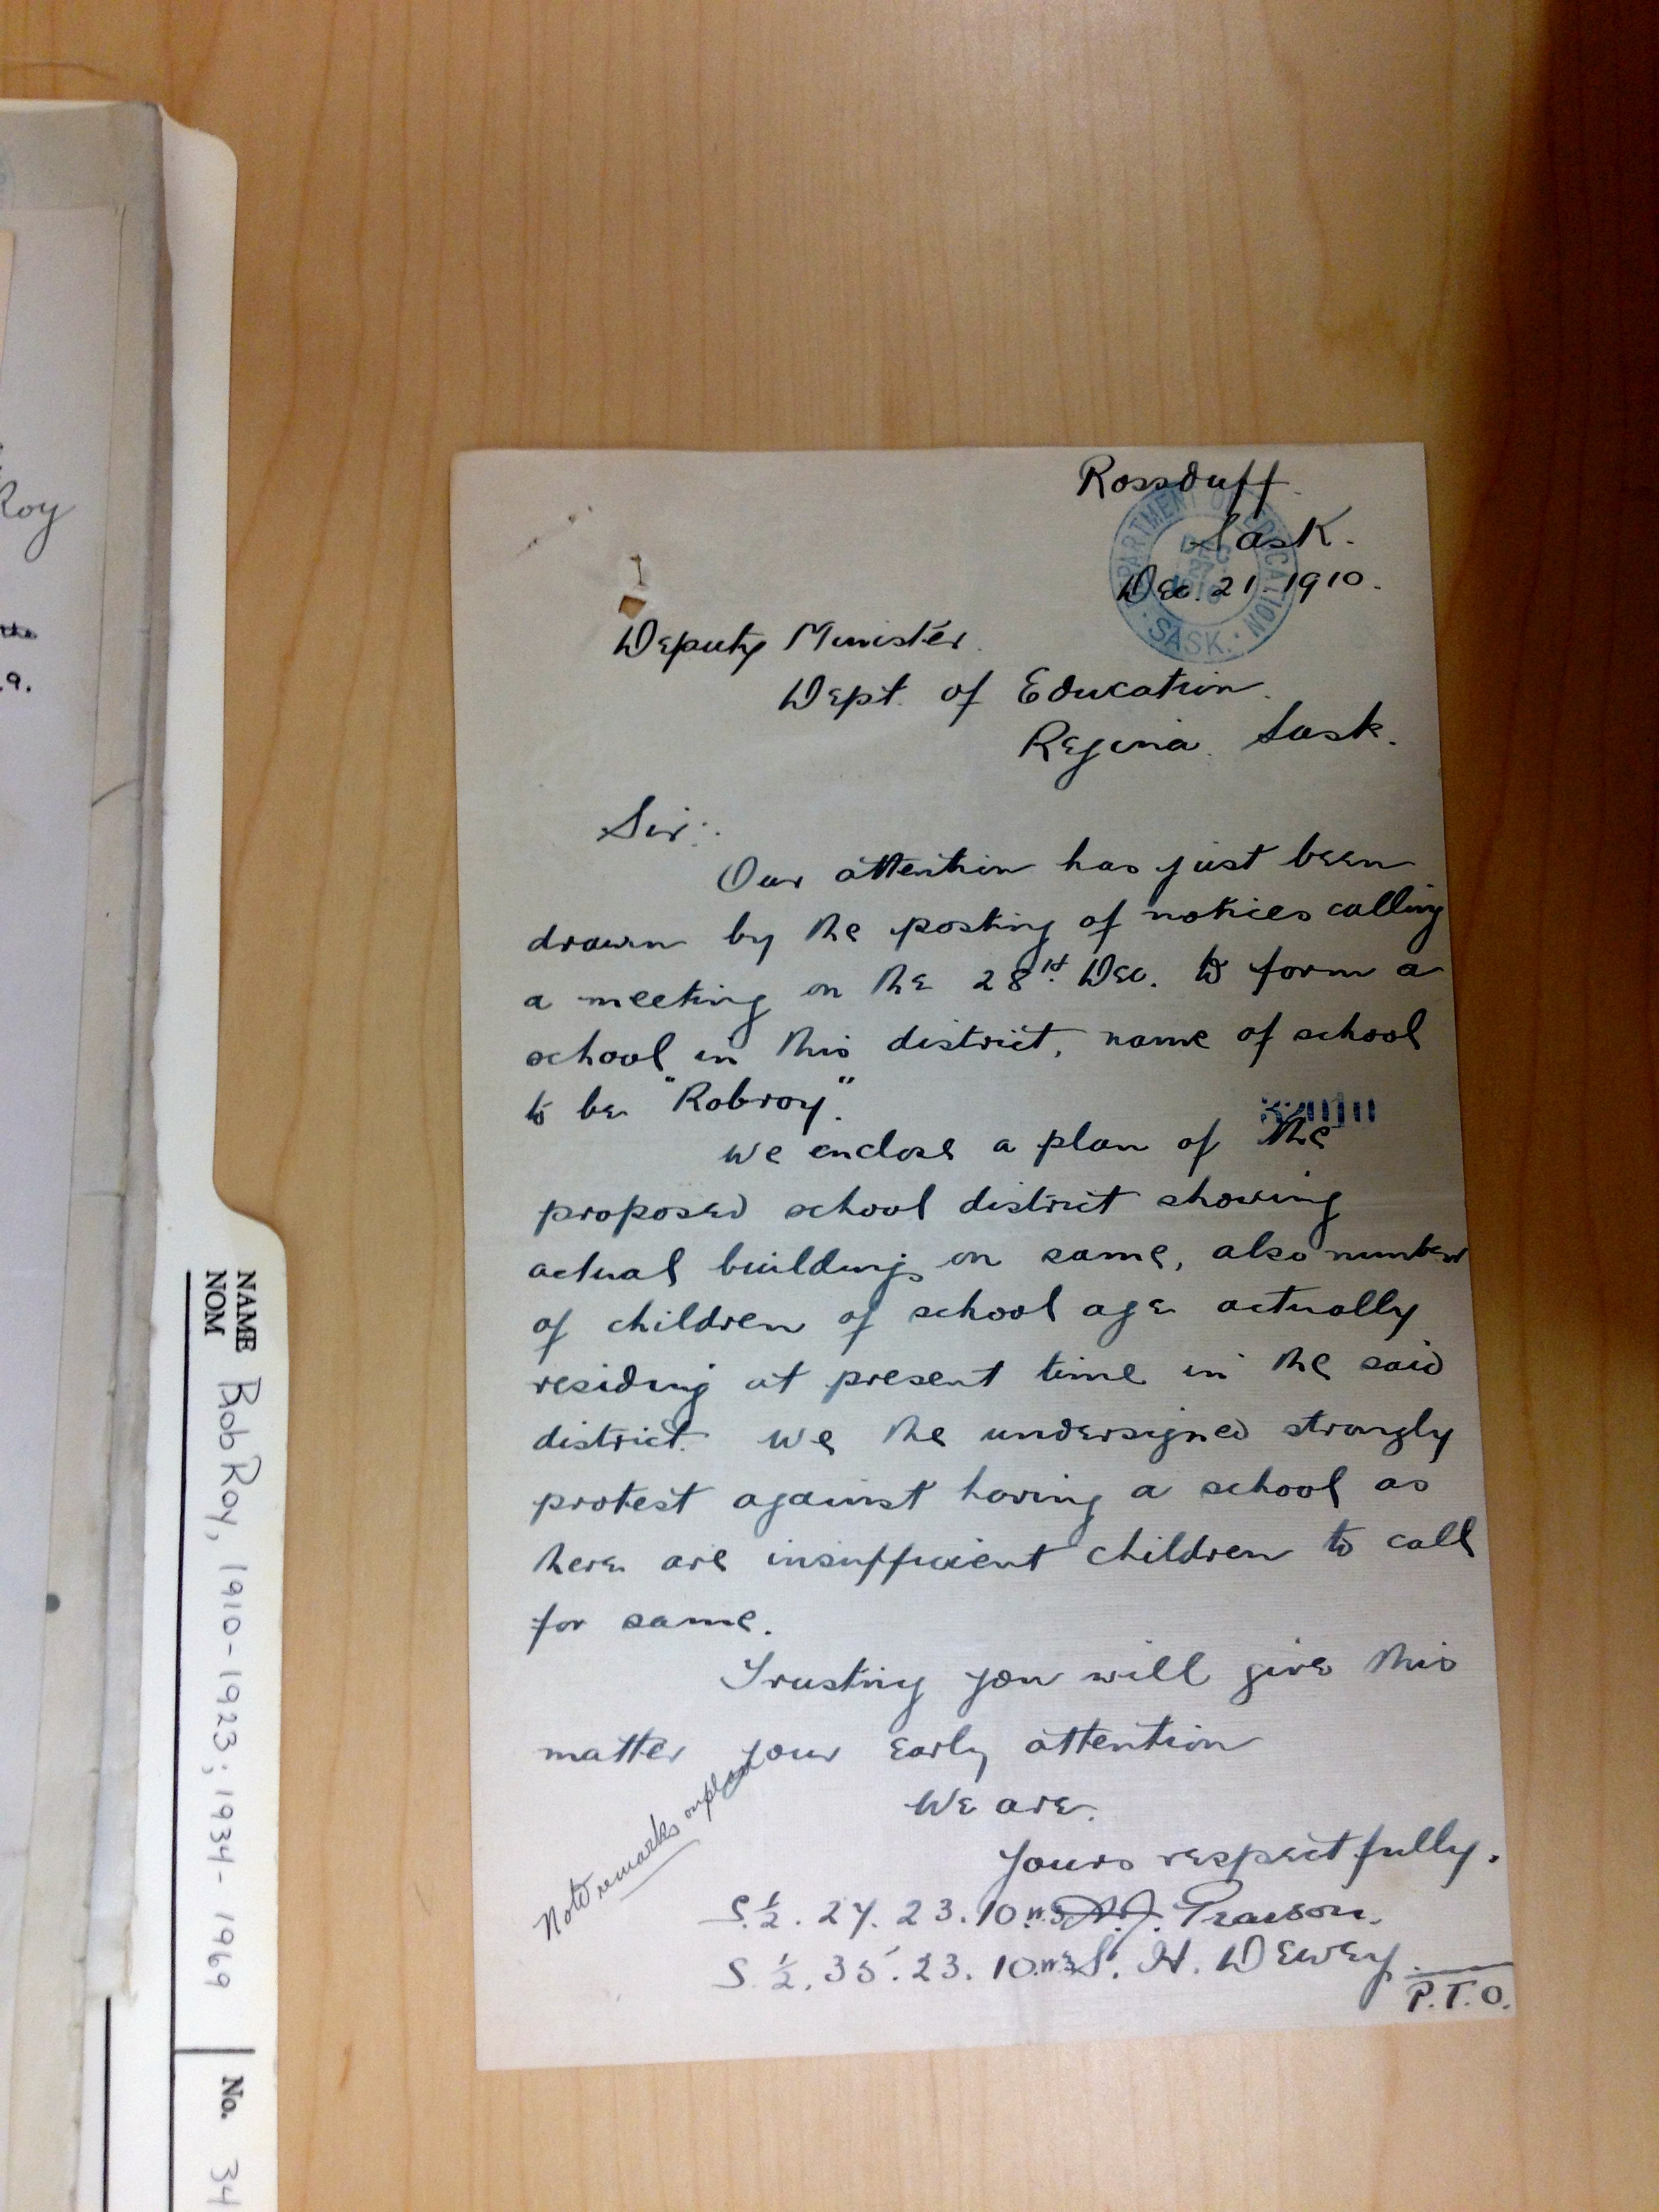 Roy
the
.9.
NAME Rob Roy, 1910-1923; 1934-1969
NOM
No. 34
Rossduff.
Sask.
Dec. 21. 1910.
DEPARTMENT OF EDUCATION
DEC
SASK.
Deputy Minister.
Dept. of Education.
Regina. Sask.
Sir:.
Our attention has just been
drawn by the posting of notices calling
a meeting on the 28st. Dec. to form a
school in this district, name of school
to be "Robroy".
We enclose a plan of the
proposed school district showing
actual buildings on same, also number
of children of school age actually
residing at present time in the said
district. We the undersigned strongly
protest against having a school as
there are insufficient children to call
for same.
Trusting you will give this
matter your early attention
We are.
Yours respectfully.
Note remarks on plan
S.½. 27. 23. 10. W3 A.J. Pearson.
S.½. 35. 23. 10. W3 S. H. Dewey.
P.T.O.